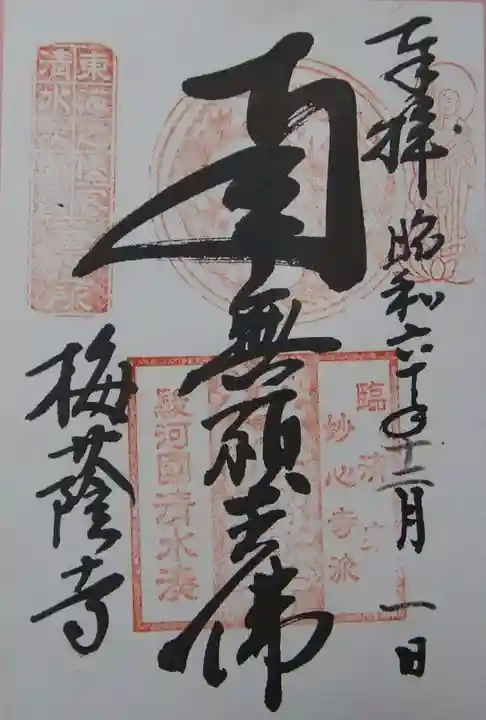 奉拝 昭和六十年十二月一日
南無願王佛
梅蔭寺
臨済宗
妙心寺派
駿河國清水湊
東海道
清水